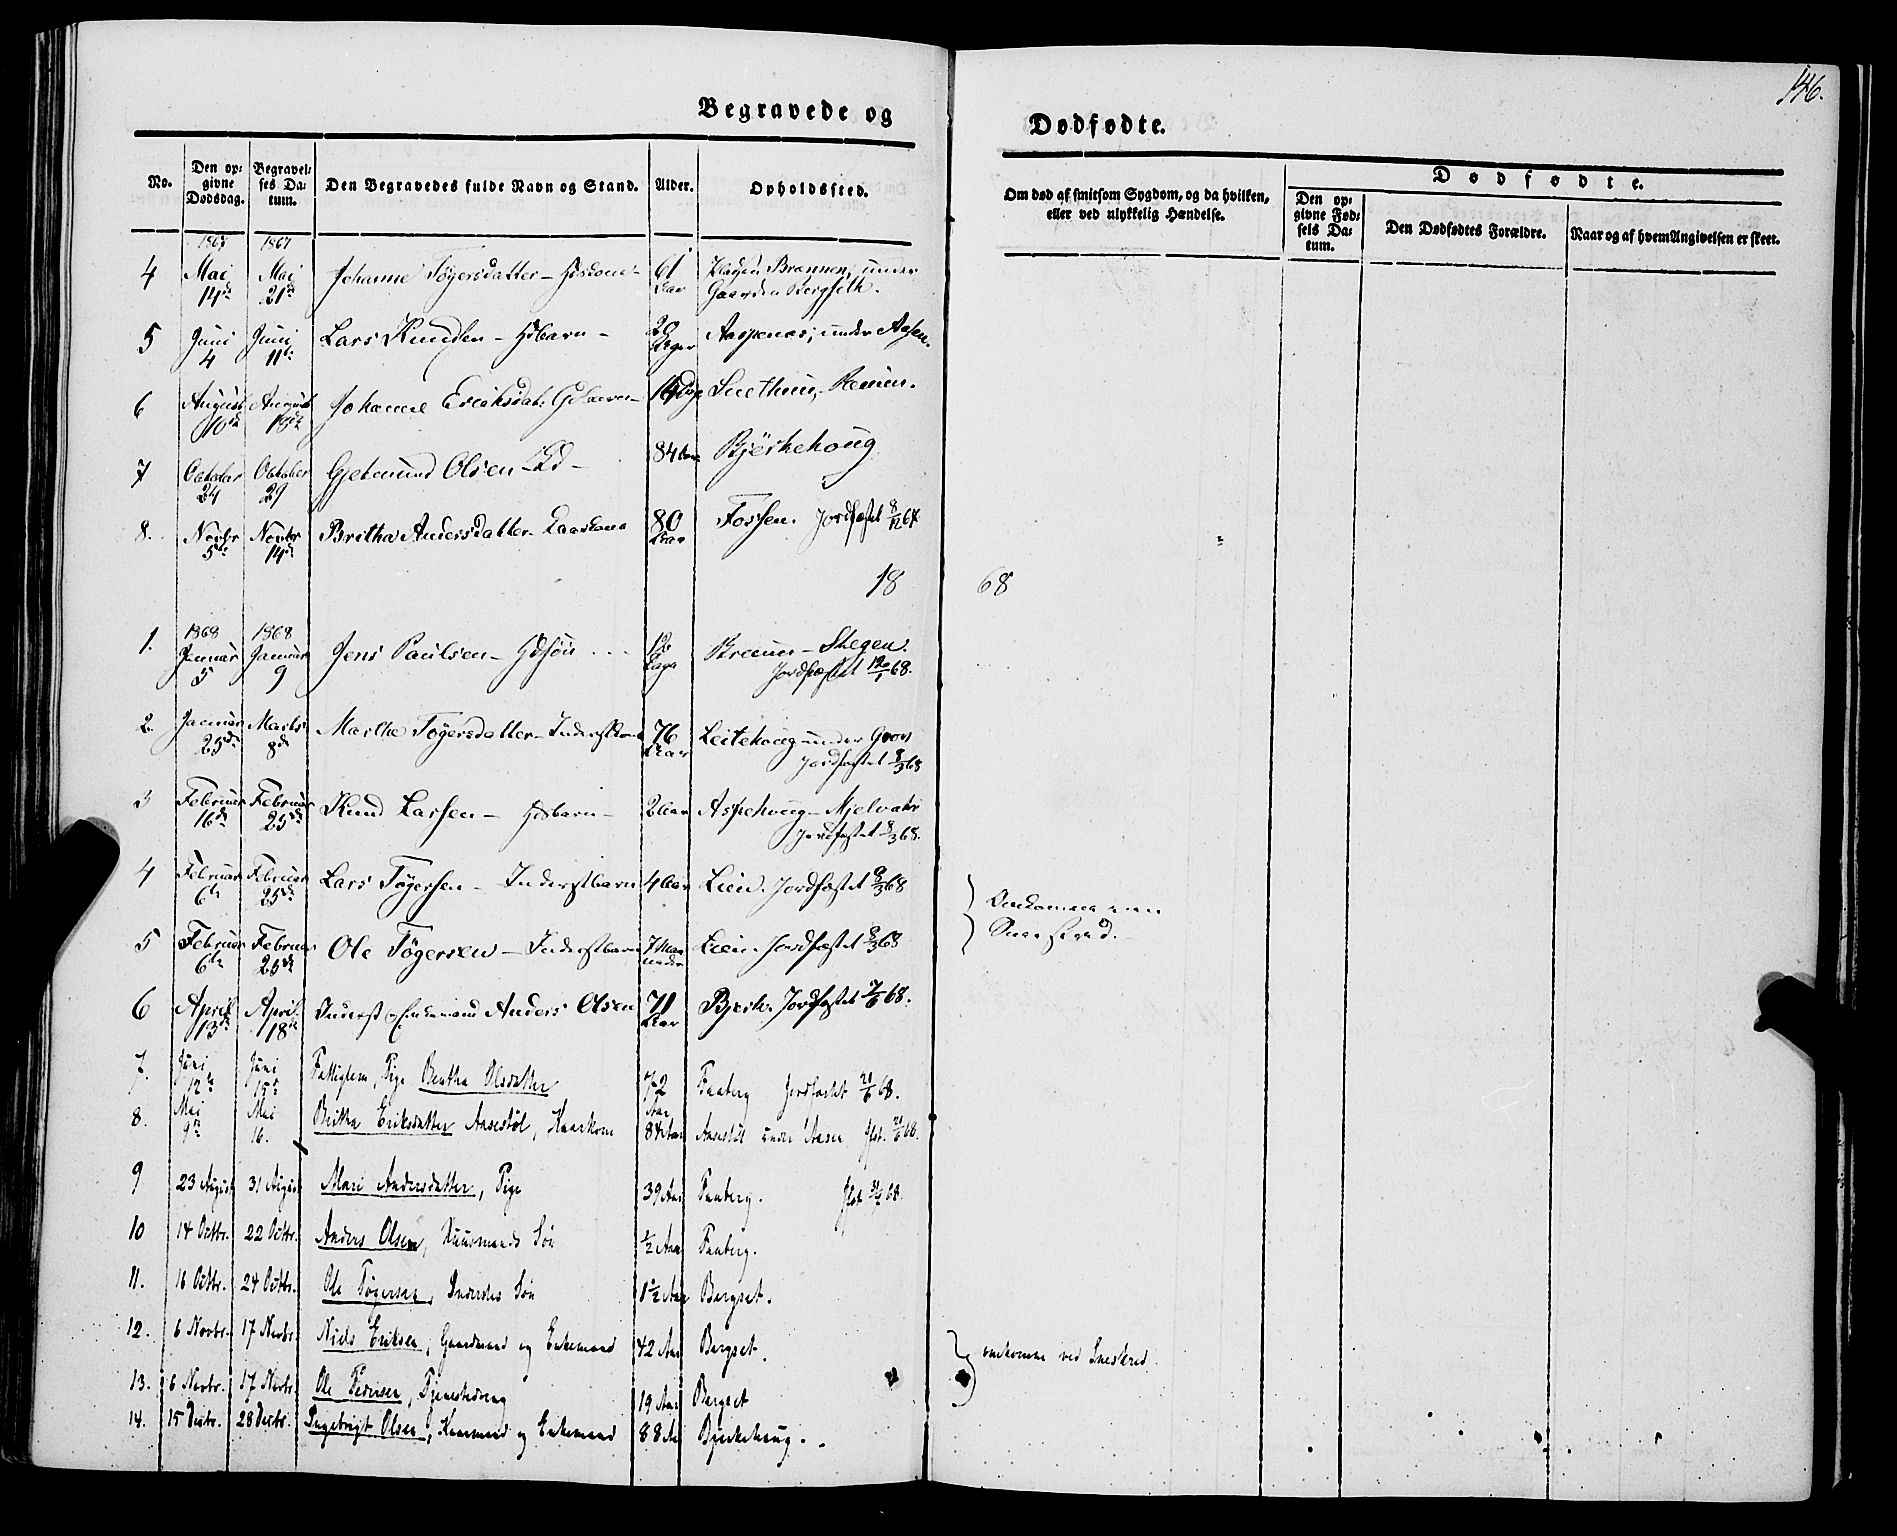 146.
Begravede og
Dødfødte.
No.
Den op-
givne
Dødsdag.
Begravel-
ses Da-
tum.
Den Begravedes fulde Navn og Stand.
Alder.
Opholdssted.
Om død af smitsom Sygdom, og da hvilken,
eller ved ulykkelig Hændelse.
Dødfødte.
Den op-
givne Fød-
sels Da-
tum.
Den Dødfødtes Forældre.
Naar og af hvem Angivelsen er skeet.
1867 1867
4 Mai 14de Mai 21de Johanne Tøgersdatter 61 Aar Pladsen under
Gaarden
5 Juni 4 Juni 11te Lars Knudsen - Hsbarn - 20 Dager Aaspenæs, under Aasen.
6 August 10de August 18de Johanne Eriksdat. Gdbarn 16 Dage
7 October 24 October 29 Gjetmund Olsen 84 Aar Bjerkehoug
8. Novbr 5te Novbr 14de Britha Andersdatter Kaarkone 80 Aar Fossen. Jordfæstet 8/12 67.
18 68
1. 1868 Januar 5 1868 Januar 9 Jens Paulsen - Gdsøn 12 Dage Skegen.
Jordfæstet 68.
2. Januar 25de Marts 8de Marthe Tøgersdatter - Inderstkone 76 Aar Leitehoug under Grov
Jordfæstet 8/3 68
3 Februar 16de Februar 25de Knud Larsen - Hsbarn - 2 Aar Aspehoug - Mjelvær
Jordfæstet 8/3 68.
4 Februar 6te Februar 25de Lars Tøgersen - Inderstbarn 4 Aar Lien. Jordfæstet 8/3 68
5 Februar 6te Februar 25de Ole Tøgersen - Inderstbarn 7 Maaneder Lien. Jordfæstet 8/3 68
Omkommen ved
Sneskred.
6 April 13de April 18de Inderst og Enkemand Anders Olsen 71 Aar Bjerk. Jordfæstet 7/6 68.
7. Juni 12te Juni 15de Fattiglem, Pige Bertha Olsdatter 72 Aar Faaberg Jordfæstet 21/6 68.
8. Mai 9de Mai 16. Britha Eriksdatter Aasestøl, Kaarkone 84 Aar Aasestøl under Aasen Jfst. 21/6 68.
9 23 August 31 August Mari Andersdatter, Pige 39 Aar Faaberg. Jfst. 68.
10 14 Octbr. 22 Octbr. Anders Olsen, Huusmands Søn 1/2 Aar Faaberg.
11. 16 Octbr. 24 Octbr. Ole Tøgersen, Inderstes Søn 1 1/2 Aar Bergset.
12. 6 Novbr. 17 Novbr. Niels Eriksen, Gaardmand og Enkemand 42 Aar Bergset.
omkomne ved Sneskred.
13. 6 Novbr. 17 Novbr. Ole Pedersen, Tjenestedreng 19 Aar Bergset
14. 15 Decbr. 28 Decbr. Ingebrigt Olsen, Kaarmand og Enkemand 88 Aar Bjerkehoug.